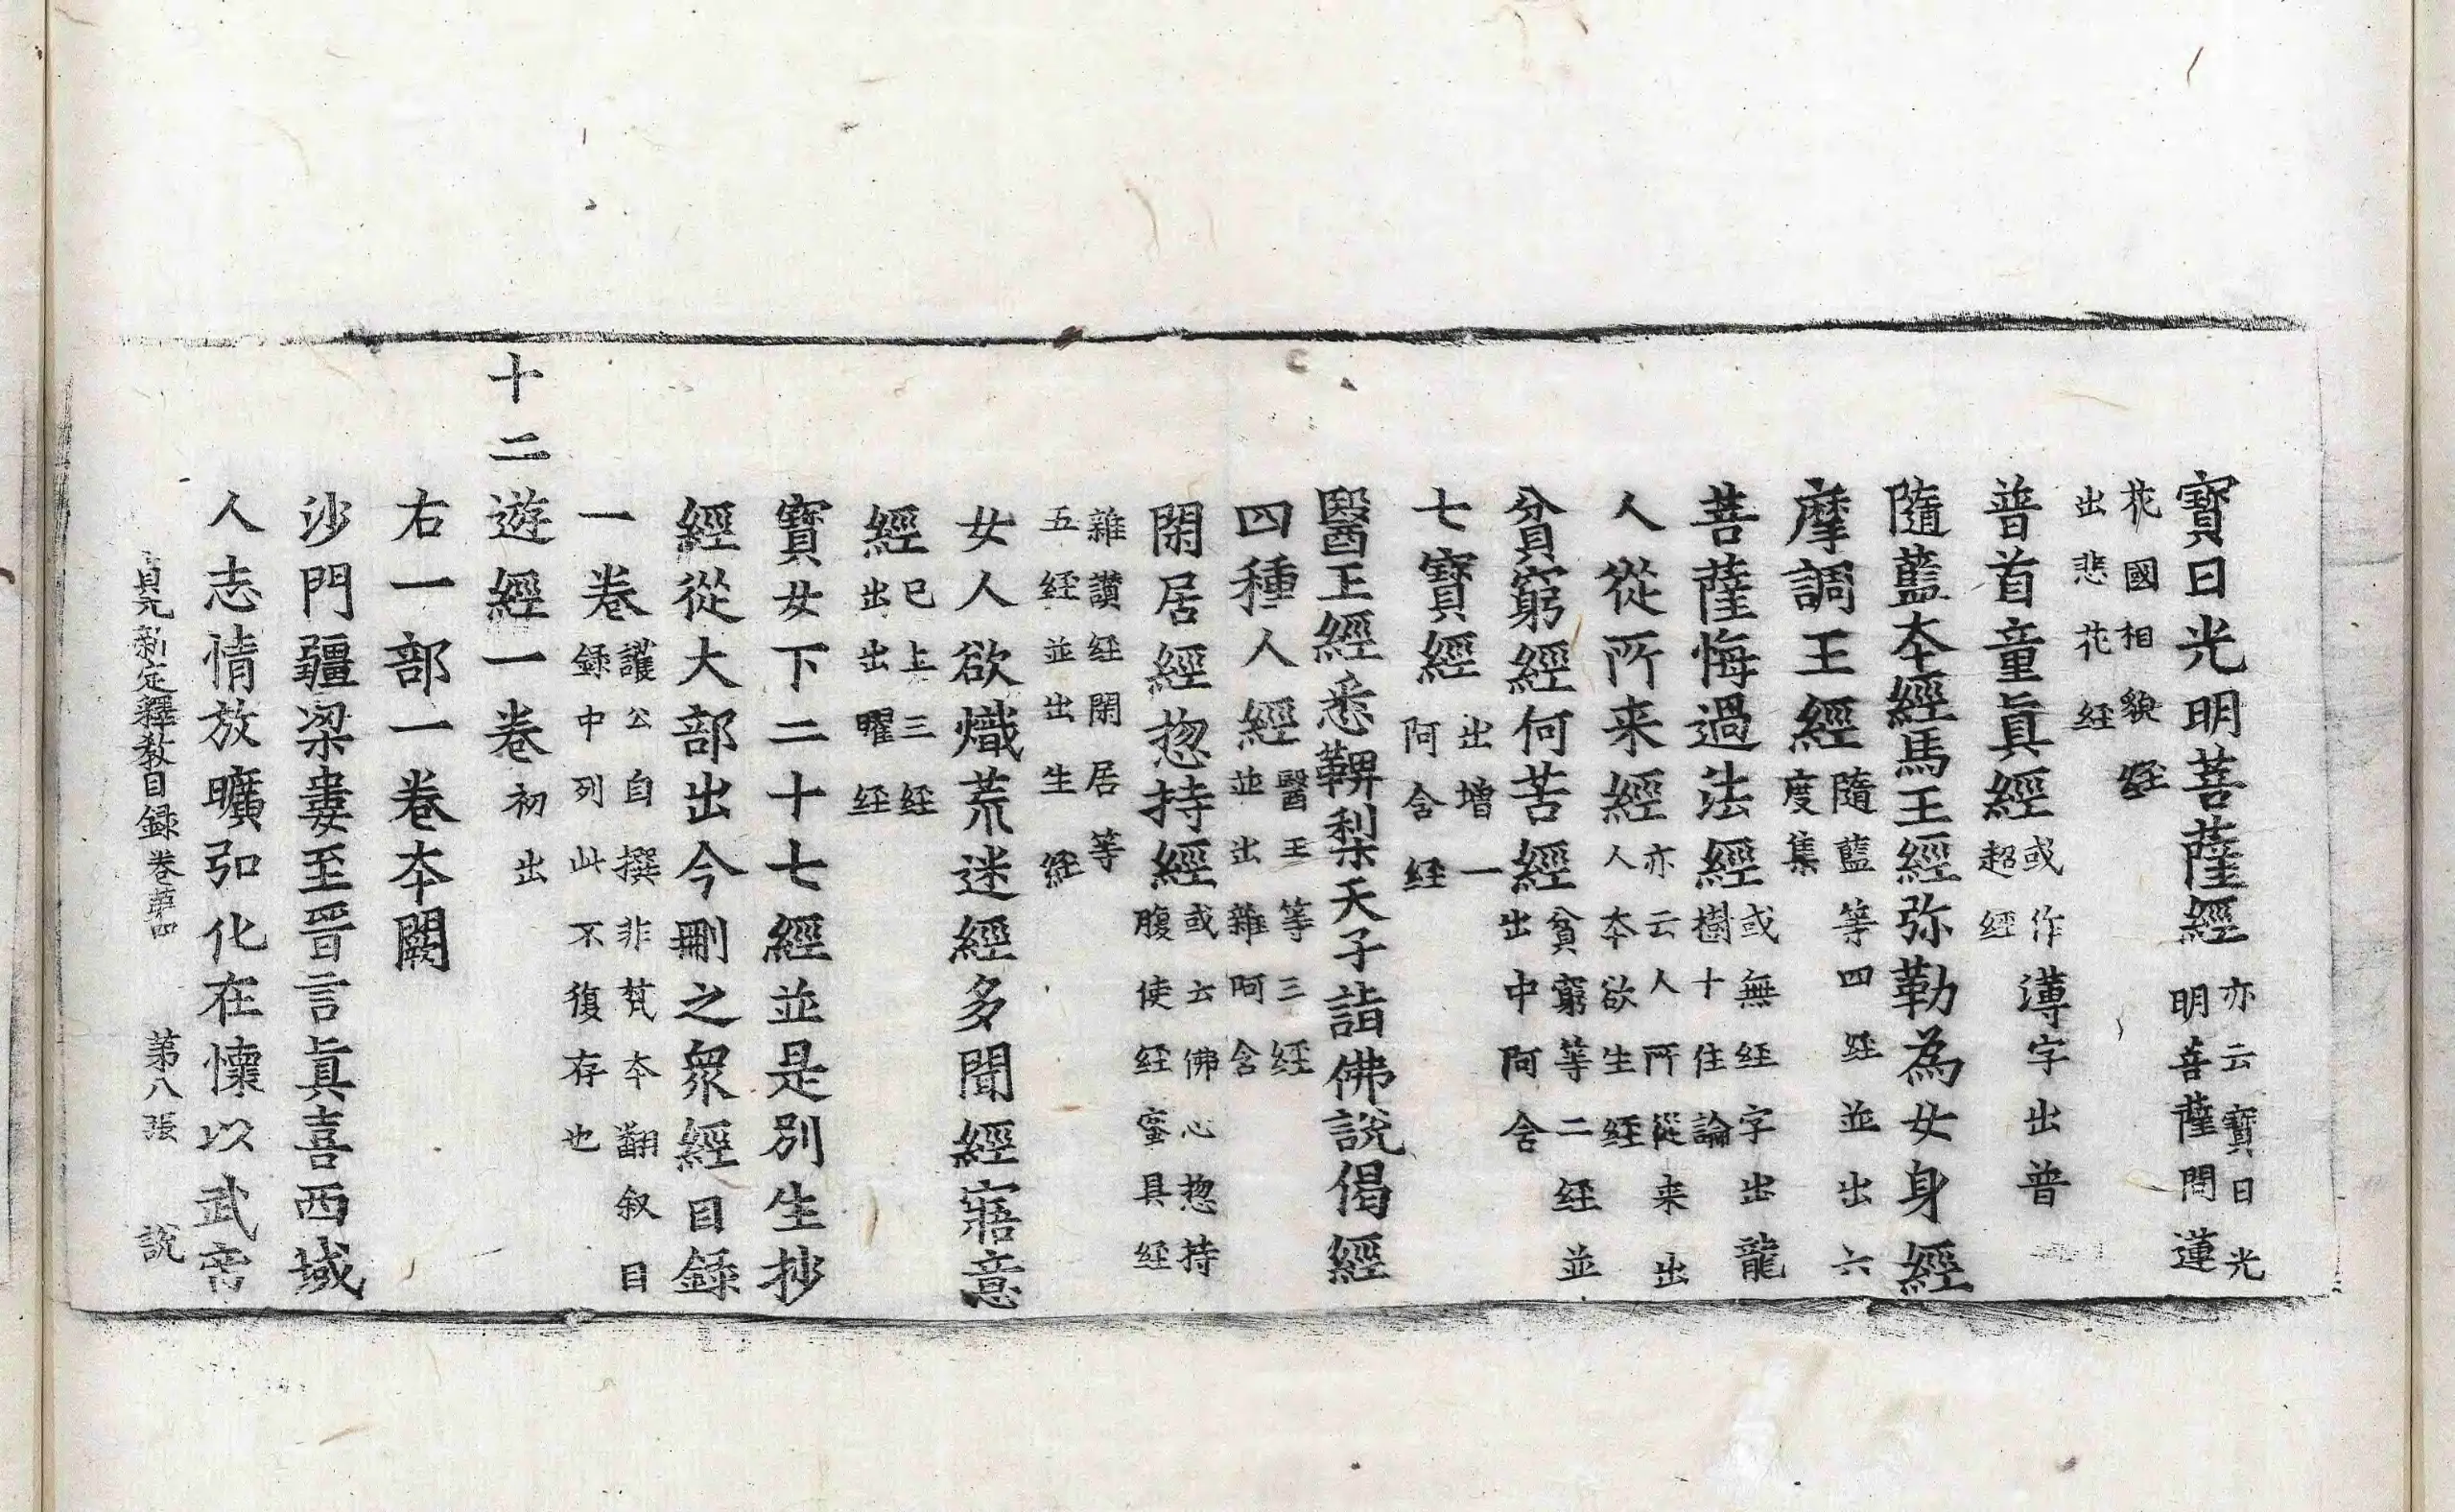 寶日光明菩薩經亦云寶日光明菩薩問蓮
花國相貌經出悲花經
普首童眞經或作薄字出普超經
隨藍本經馬王經弥勒為女身經
摩調王經隨藍等四経並出六度集
菩薩悔過法經或無経字出龍樹十住論
人從所来經亦云人所從来出人本欲生経
貧窮經何苦經貧窮等二経並出中阿含
七寶經出增一阿含経
醫王經悉鞞梨天子詣佛說偈經
四種人經醫王等三経並出雜阿含
閑居經惣持經或云佛心惣持腹使経蜜具経
雜讚経閑居等五経並出生経
女人欲熾荒迷經多聞經寤意
經已上三経出出曜経
寶女下二十七經並是別生抄
經從大部出今刪之衆經目録
一卷護公自撰非梵本翻叙目録中列此不復存也
十二遊經一卷初出
右一部一卷本闕
沙門疆梁婁至晉言眞喜西域
人志情放曠弘化在懷以武帝
貞元新定釋教目録卷第四　第八張　說